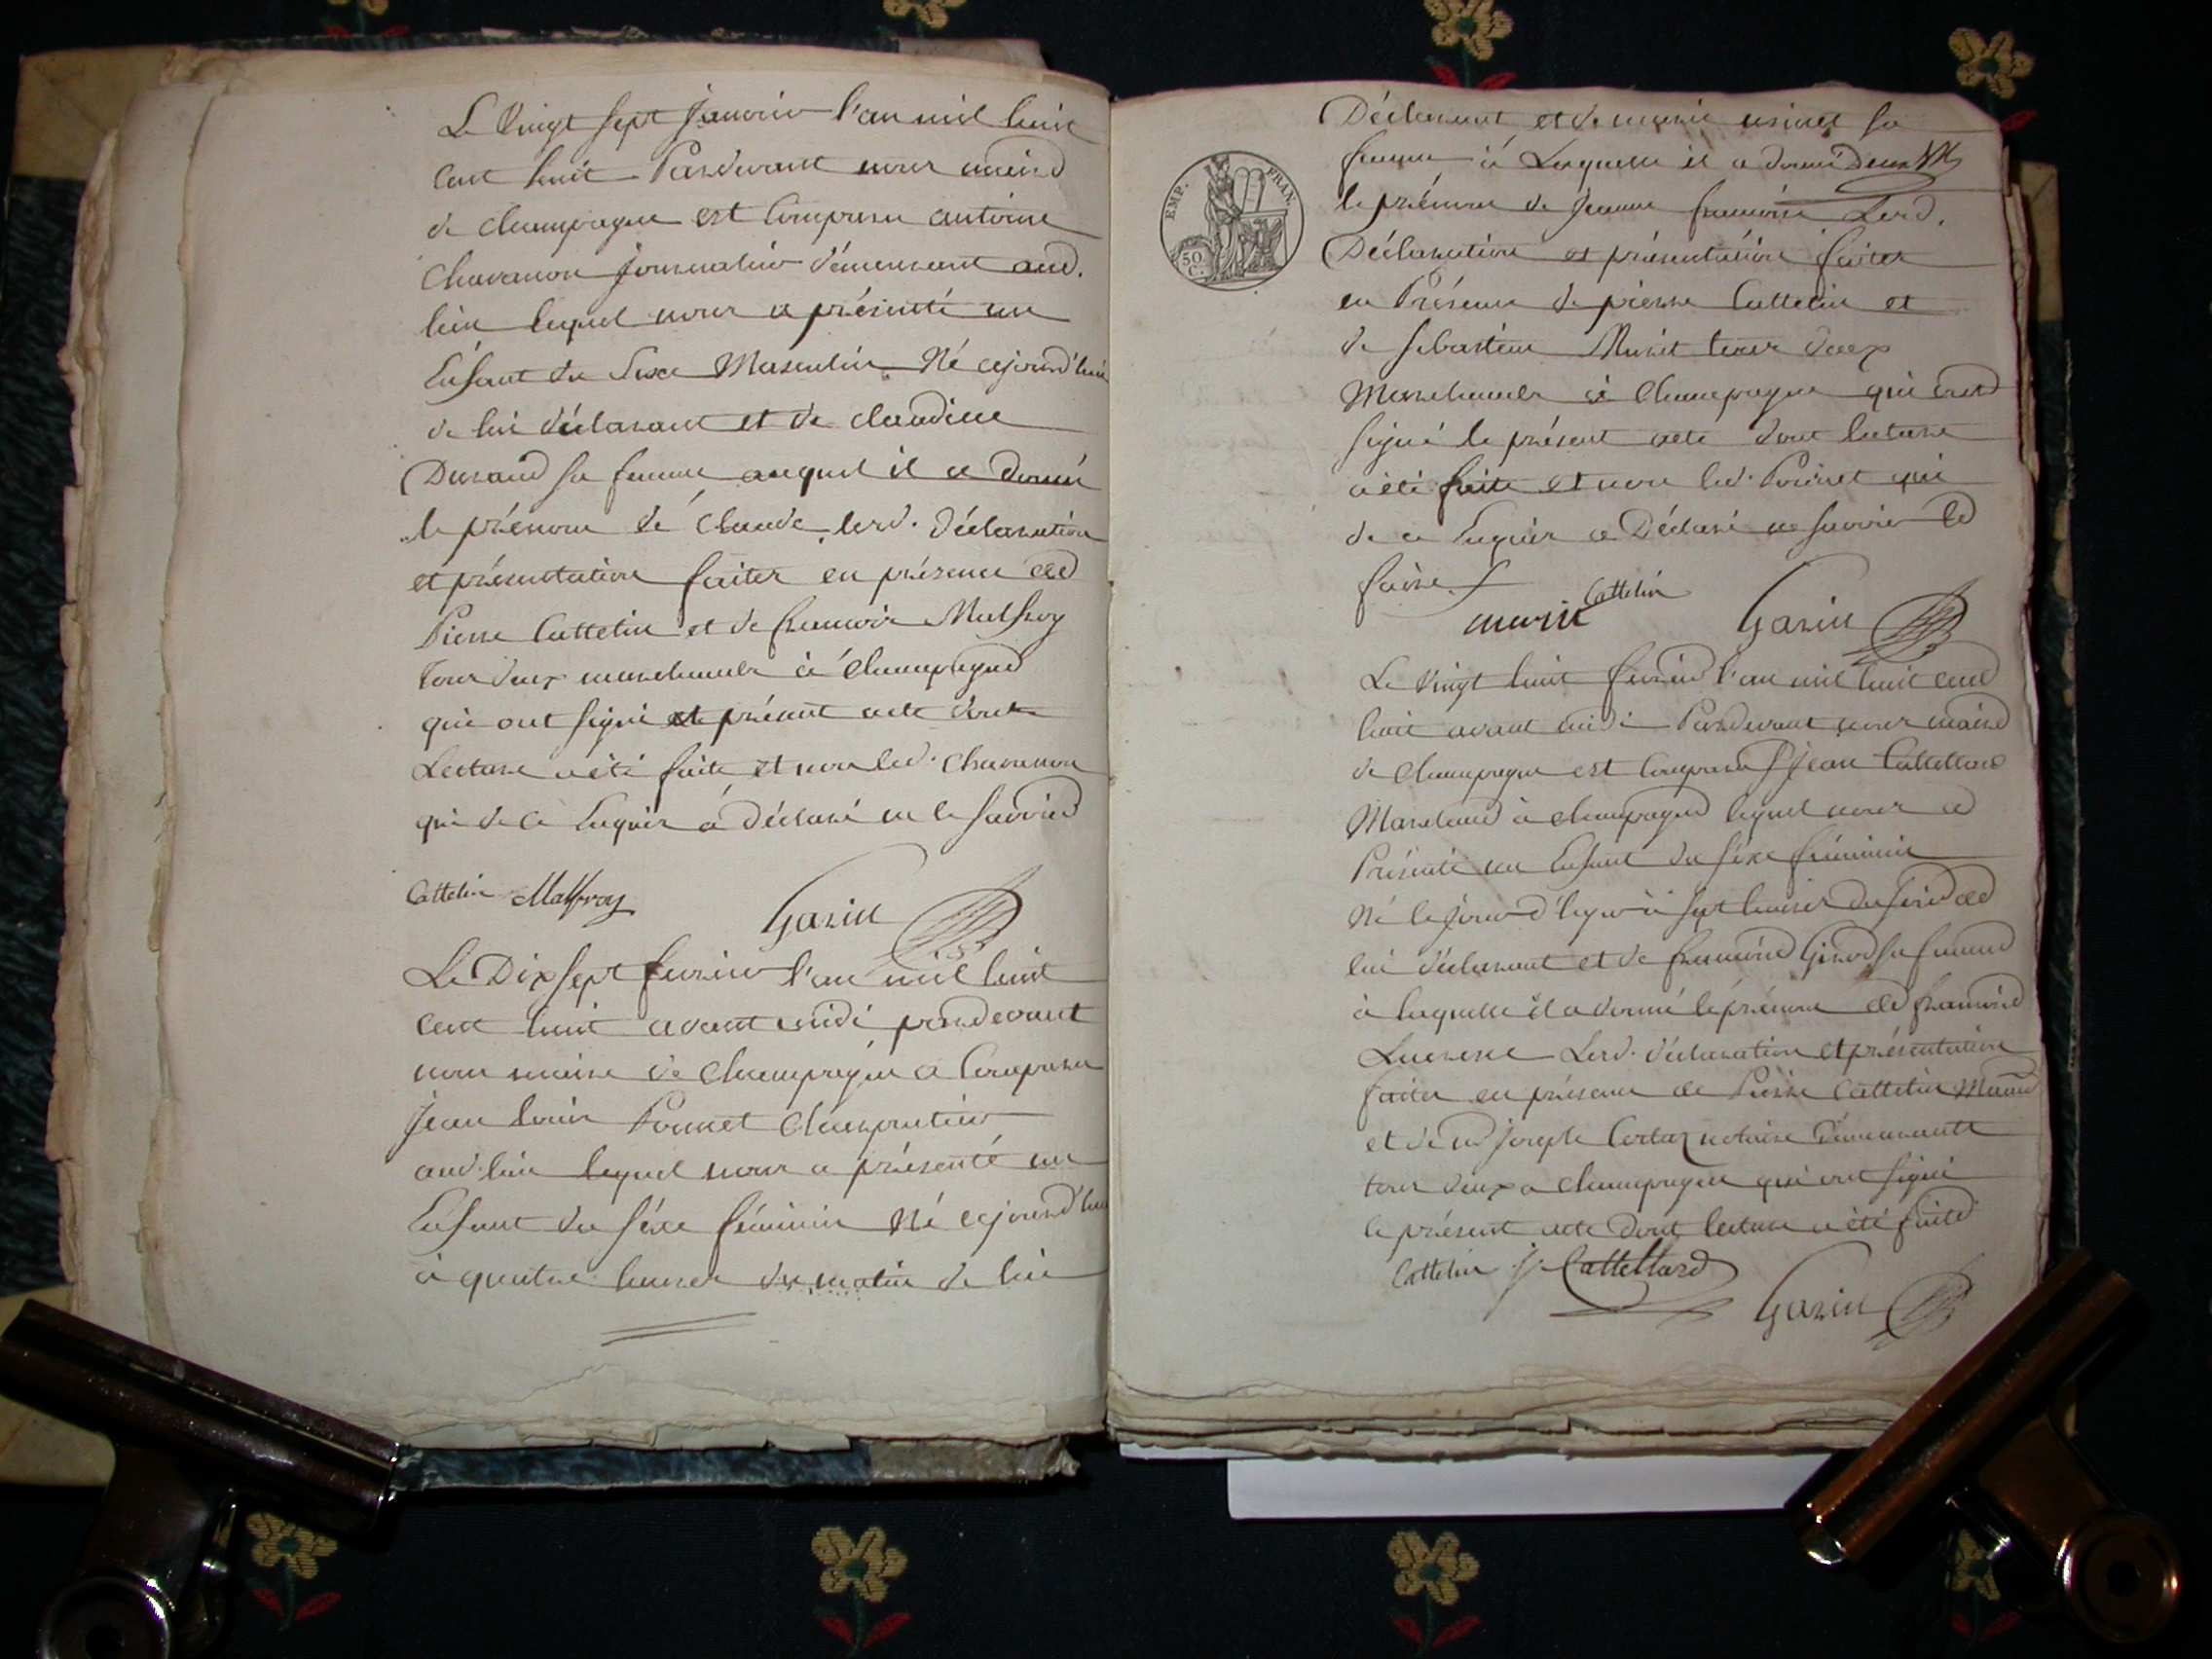 Le Vingt sept Janvier l'an mil huit
cent huit Pardevant nous maire
de Champagne est Comparu antoine
Chavanon journalier démeurant aud.
lieu lequel nous a présenté un
Enfant du Sexe Masculin Né cejourd'hui
de lui déclarant et de claudine
Durand sa femme auquel il a donné
le prénom de Claude, lesd. déclaration
et présentation faites en présence de
Pierre Cattelin et de francois Malfroy
tous deux marchands à Champagne
qui ont signé le présent acte dont
Lecture a été faite et non led. Chavanon
qui de ce Enquis a déclaré ne le savoir
Cattelin Malfroy Garin
Le Dix sept fevrier l'an mil huit
cent huit avant midi pardevant
nous maire de Champagne a Comparu
Jean louis Poncet Charpentier
aud. lieu lequel nous a présenté un
Enfant du séxe féminin Né cejourd'hui
à quatre heures du matin de lui
EMP. FRAN.
50 C.
Déclarant et de marie sa
femme à Laquelle il a donné
le prénom de Jeanne francoise Lesd.
Déclaration et présentation faites
en Présence de pierre Cattelin et
de Sebastien tous deux
Marchands à Champagne qui ont
signé le présent acte dont lecture
a été faite et non led. Poncet qui
de ce Enquis a Déclaré ne savoir le
faire
Cattelin
Garin
Le Vingt huit fevrier l'an mil huit cent
huit avant midi Pardevant nous maire
de Champagne est Comparu Sr Jean Cattelland
Marchand à Champagne lequel nous a
Présenté un Enfant du séxe féminin
Né le jour d'hyer à sept heures du soir de
lui déclarant et de francoise Girod sa femme
à laquelle il a donné le prénom de francoise
Lucresse Lesd. déclaration et présentation
faites en présence de Pierre Cattelin
et de Joseph notaire démeurants
tous deux a Champagne qui ont signé
le présent acte Dont lecture a été faite
Cattelin J. Cattelland
Garin